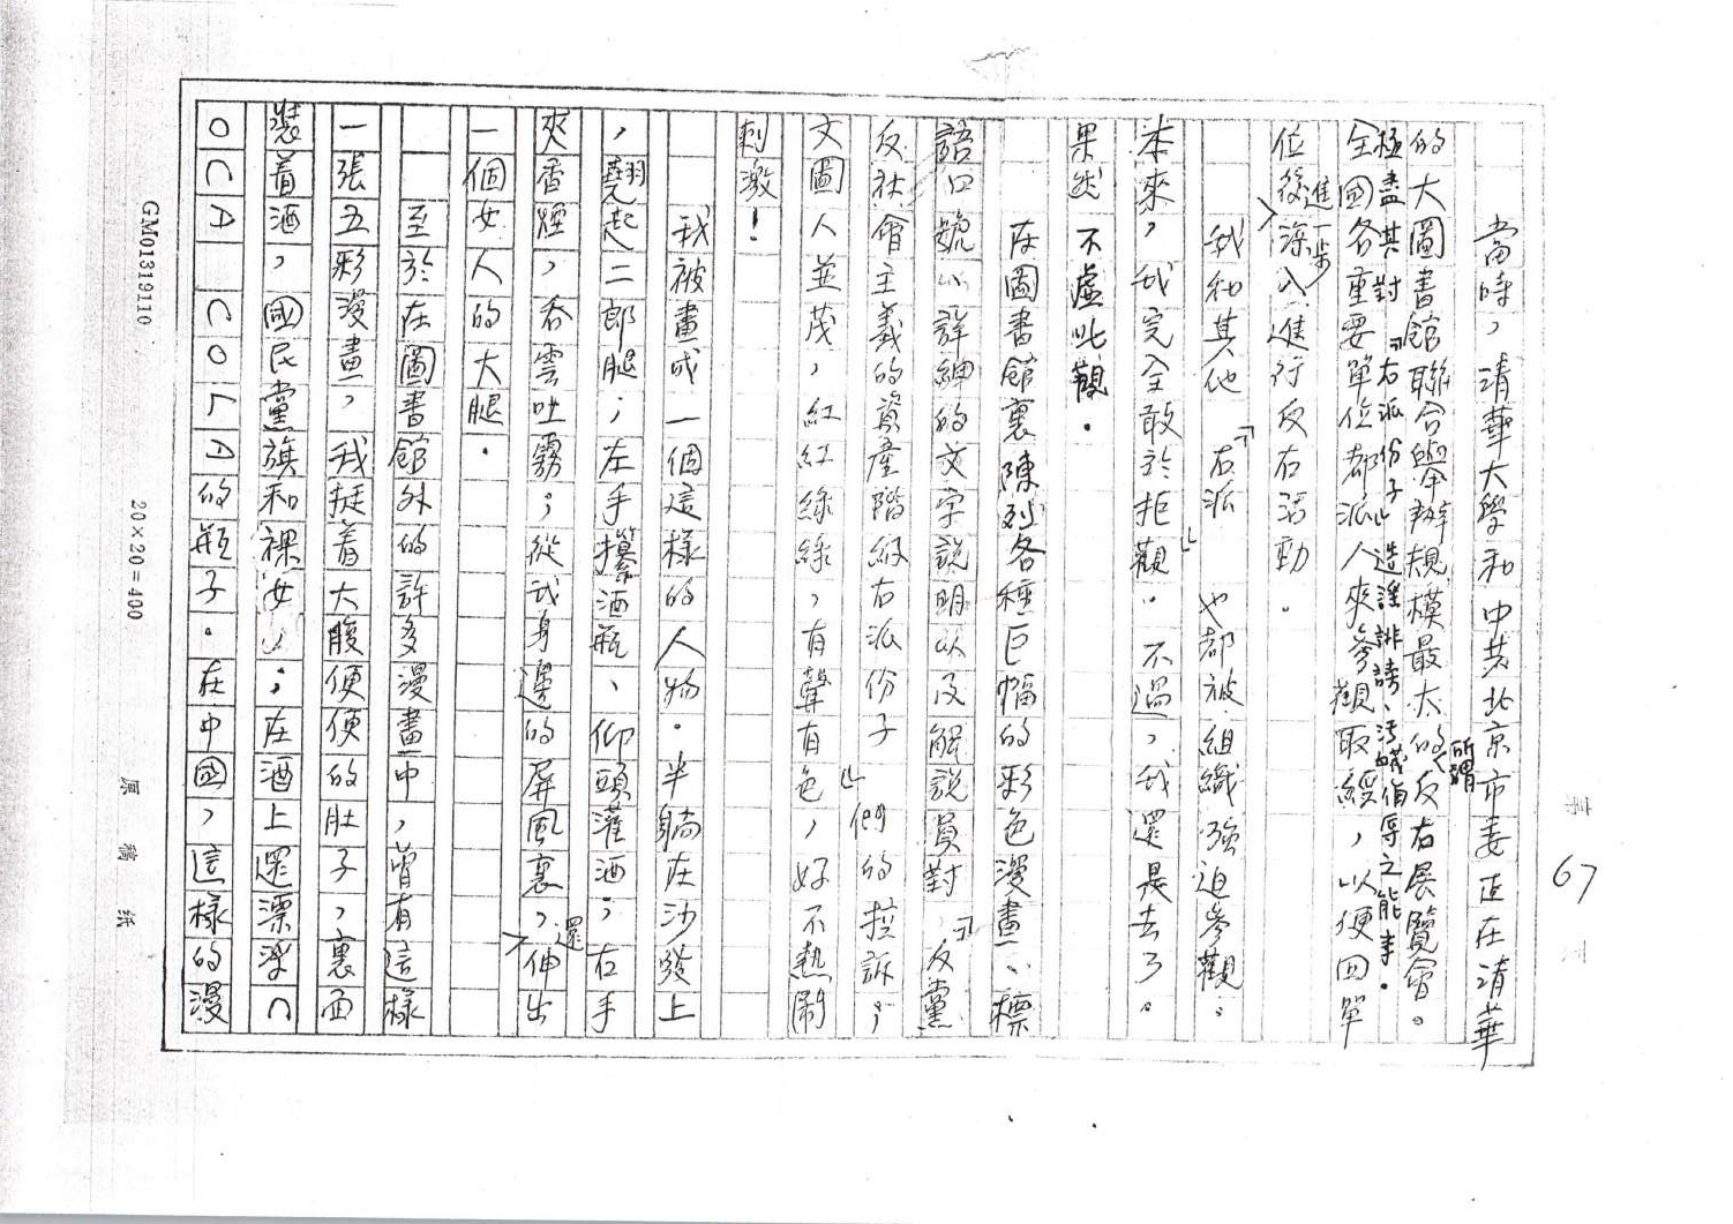 67
當時，清華大學和中共北京市委正在清華
的大圖書館聯合舉辦規模最大的所謂反右展覽會。
極盡其對『右派份子』造謠、誹謗、污衊、侮辱之能事。
全國各重要單位都派人來參觀取經，以便回單
位後進一步深入進行反右活動。
我和其他『右派』也都被組織強迫參觀。
本來，我完全敢於拒觀。不過，我還是去了。
果然不虛此觀。
在圖書館裏陳列各種巨幅的彩色漫畫、標
語口號以詳細的文字說明以及解說員對『反黨
反社會主義的資產階級右派份子』們的控訴；
文圖人並茂，紅紅綠綠，有聲有色，好不熱鬧
刺激！
我被畫成一個這樣的人物。半躺在沙發上
，翹起二郎腿；左手攥酒瓶、仰頭灌酒；右手
夾香煙，吞雲吐霧；從我身邊的屏風裏，還伸出
一個女人的大腿。
至於在圖書館外的許多漫畫中，曾有這樣
一張五彩漫畫，我挺着大腹便便的肚子，裏面
裝着酒，國民黨旗和裸女；在酒上還漂浮∩
OCA COLA的瓶子。在中國，這樣的漫
GM01319110
20×20=400
原稿紙